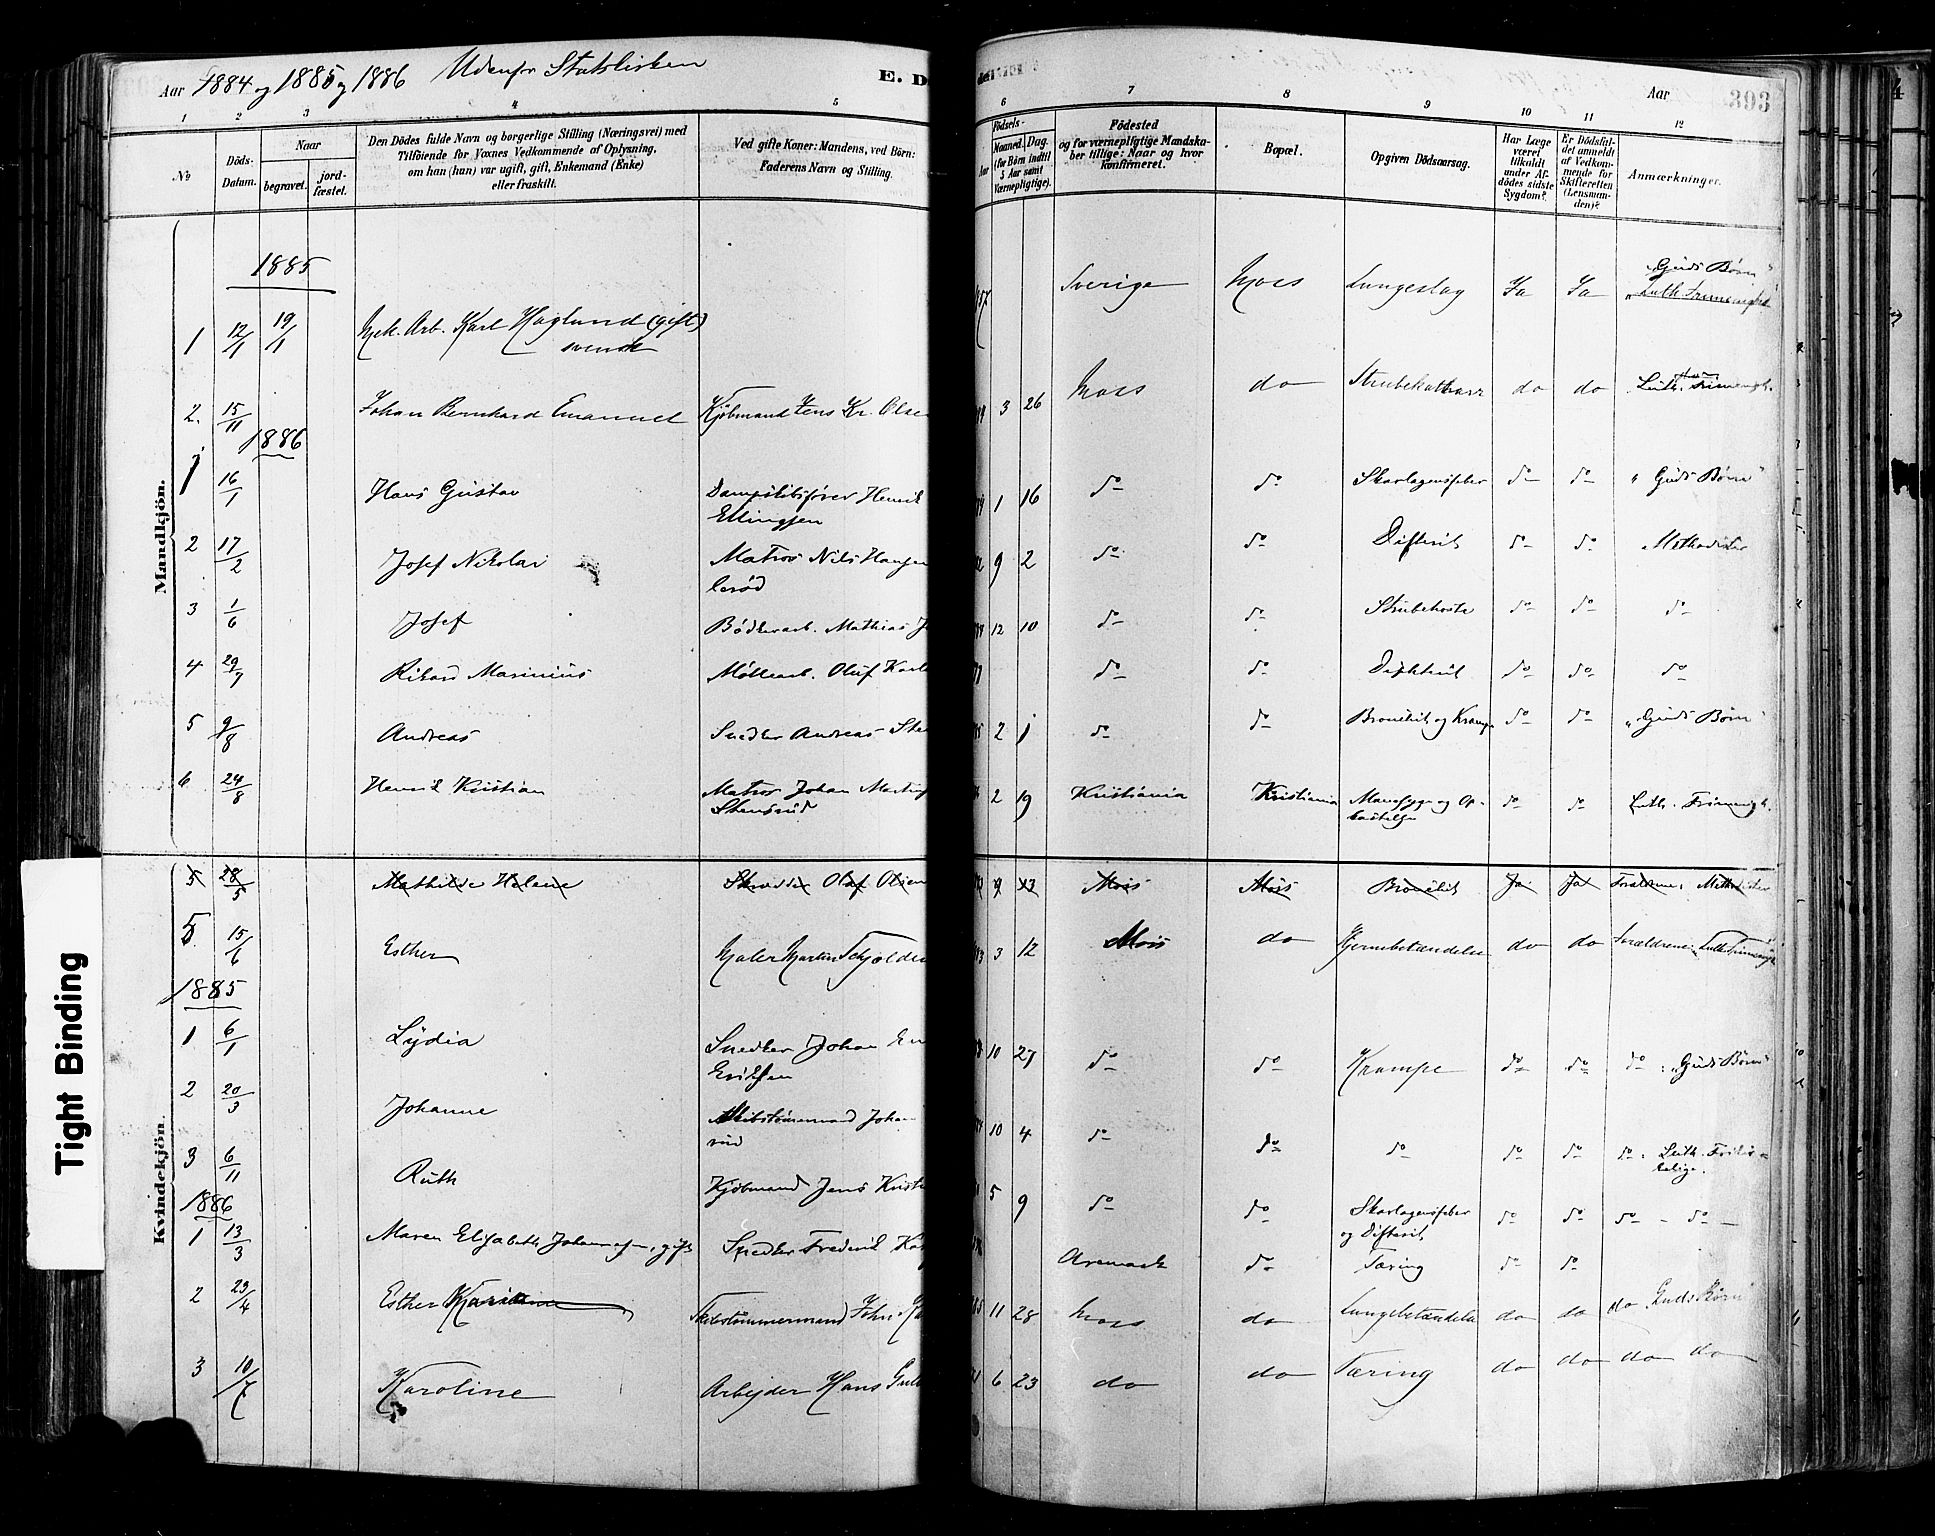 Aar 1884 og 1885 og 1886 Udenfor Statskirken
E. D
Aar
393
1 2 3 4 5
6 7 8 9 10 11 12
No
Döds-Datum.
Naar
begravet.
jord-fæstet.
Den Dödes fulde Navn og borgerlige Stilling (Næringsvei) med
Tilföiende for Voxnes Vedkommende af Oplysning,
om han (hun) var ugift, gift, Enkemand (Enke)
eller fraskilt.
Ved gifte Koner: Mandens, ved Börn:
Faderens Navn og Stilling.
Födsels-
Aar
Maaned. Dag.
(for Börn indtil
5 Aar samt
Værnepligtige).
Födested
og for værnepligtige Mandska-
ber tillige: Naar og hvor
konfirmeret.
Bopæl.
Opgiven Dödsaarsag.
Har Læge
været
tilkaldt
under Af-
dödes sidste
Sygdom?
Er Dödsfal-
det anmeldt
af Vedkom-
mende for
Skifteretten
(Lensman-
den)?
Anmærkninger.
Mandkjön.
1885
1 12/1 19/1 Mek. Arb. Karl Haglund (gift) svensk Sverige Moss Lungeslag Ja Ja "Guds Børn" Luth. Frimenighed
2. 15/11 Johan Bernhard Emanuel Kjøbmand Jens Kr. Olse 3 26 Moss do Strubekatharr do do Luth. Frimenigh.
1886
1 16/1 Hans Gustav Dampskibsfører Henrik Ellingsen 1 16 do do Skarlagensfeber do do "Guds Børn"
2 17/2 Josef Nikolai Matros Nils Hansen 9 2 do do Difterit do do Methodister
3 1/6 Josef Bødkerarb. Mathias J 12 10 do do Strubehoste do do do
4 29/7 Rikard Marinius Møllearb. Oluf Karl do do Difterit do do do
5 9/8 Andreas Snedker Andreas 2 1 do do Bronchit og Krampe do do "Guds Børn"
6 24/8 Henrik Kristian Matros Johan Martin Stensrud 2 19 Kristiania Kristiania Mavesyge og Opkastelse do do Luth. Frimenigh.
Kvindekjön.
5 28/5 Mathilde Helene Skrædder Olaf Olsen 9 23 Moss Moss Bronchit Ja Ja Forældrene: Methodister
5 15/6 Esther Maler Martin Schjolden 3 12 Moss do Hjernebetændelse do do Forældrene: Luth. Frimenigh
1885
1 6/1 Lydia Snedker Johan Eriksen 10 27 do do Krampe do do do: "Guds Børn"
2 20/3 Johanne Skibstømmermand Johan 10 4 do do do do do do: Luth. Fri
3 6/11 Ruth Kjøbmand Jens Krist 5 9 do do Skarlagensfeber og Difterit do do do - do -
1886
1 13/3 Maren Elisabeth Johannesen, gift Snedker Frederik Aremark do Tæring do do
2 23/4 Esther Skibstømmermand John 11 28 Moss do Lungebetændelse do do do Guds Børn
3 10/7 Karoline Arbejder Hans Gul 6 23 do do Tæring do do do do
Tight Binding